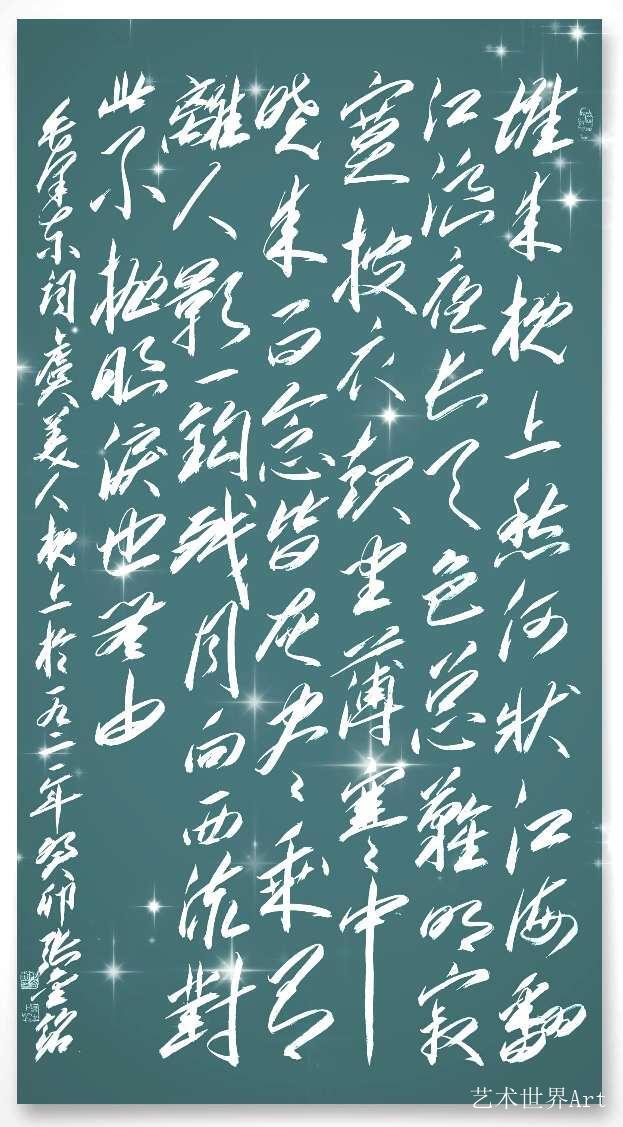 堆来枕上愁何狀江海翻
江浪夜长天色总難明寂
寞披衣起坐薄寒中
晓来百念皆灰尽剩有
離人影一钩残月向西流對
此不抛眼淚也無由
毛泽东词虞美人枕上於一九二一年癸卯张铭
艺术世界Art